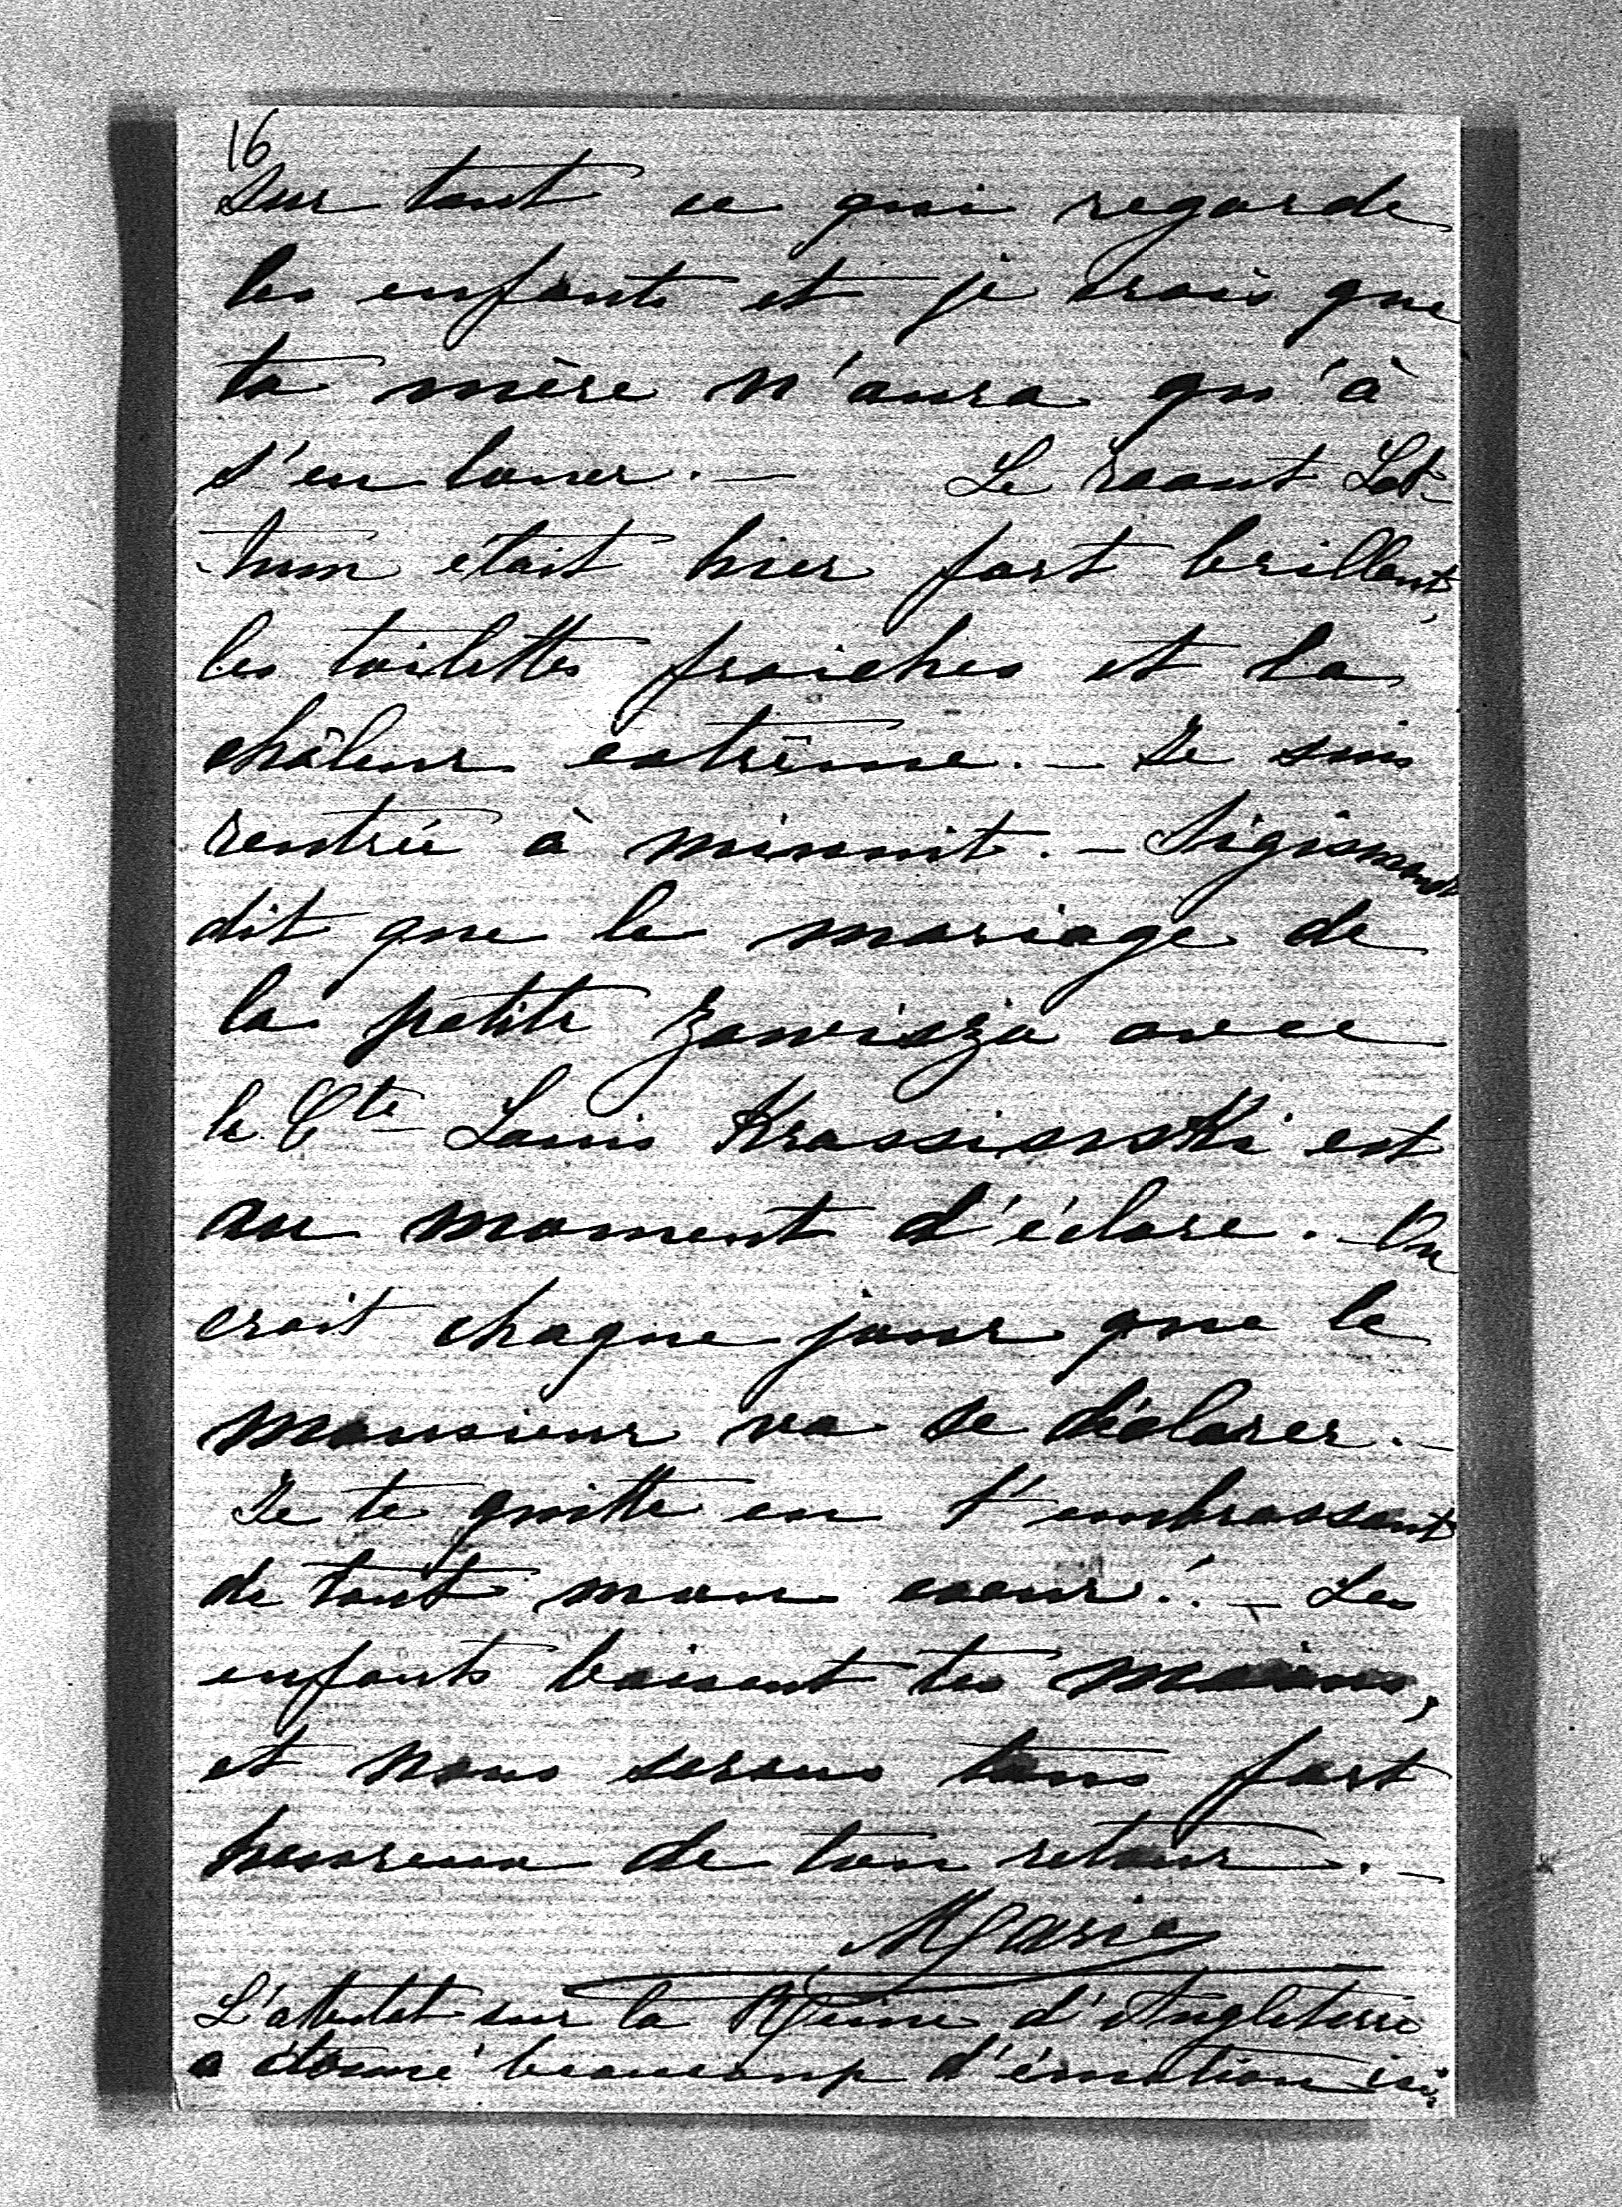 16
sur tout ce qui regarde
les enfants et je crois que
ta mère n'aura qu'à
s'en louer. — Le raout Lot-
-tum était hier fort brillant,
les toilettes fraiches et la
châleur extrême. — Je suis
rentrée à minuit. — Sigismond
dit que le mariage de
la petite Zawisza avec
le Cte Louis Krassinski est
au moment d'éclore. — On
croit chaque jour que le
monsieur va se déclarer. —
Je te quitte en t'embrassant
de tout mon coeur! — Les
enfants baisent tes mains,
et nous serons tous fort
heureux de ton retour. —
Marie
L'attentat sur la Reine d'Angleterre
a beaucoup d'émotion ici.